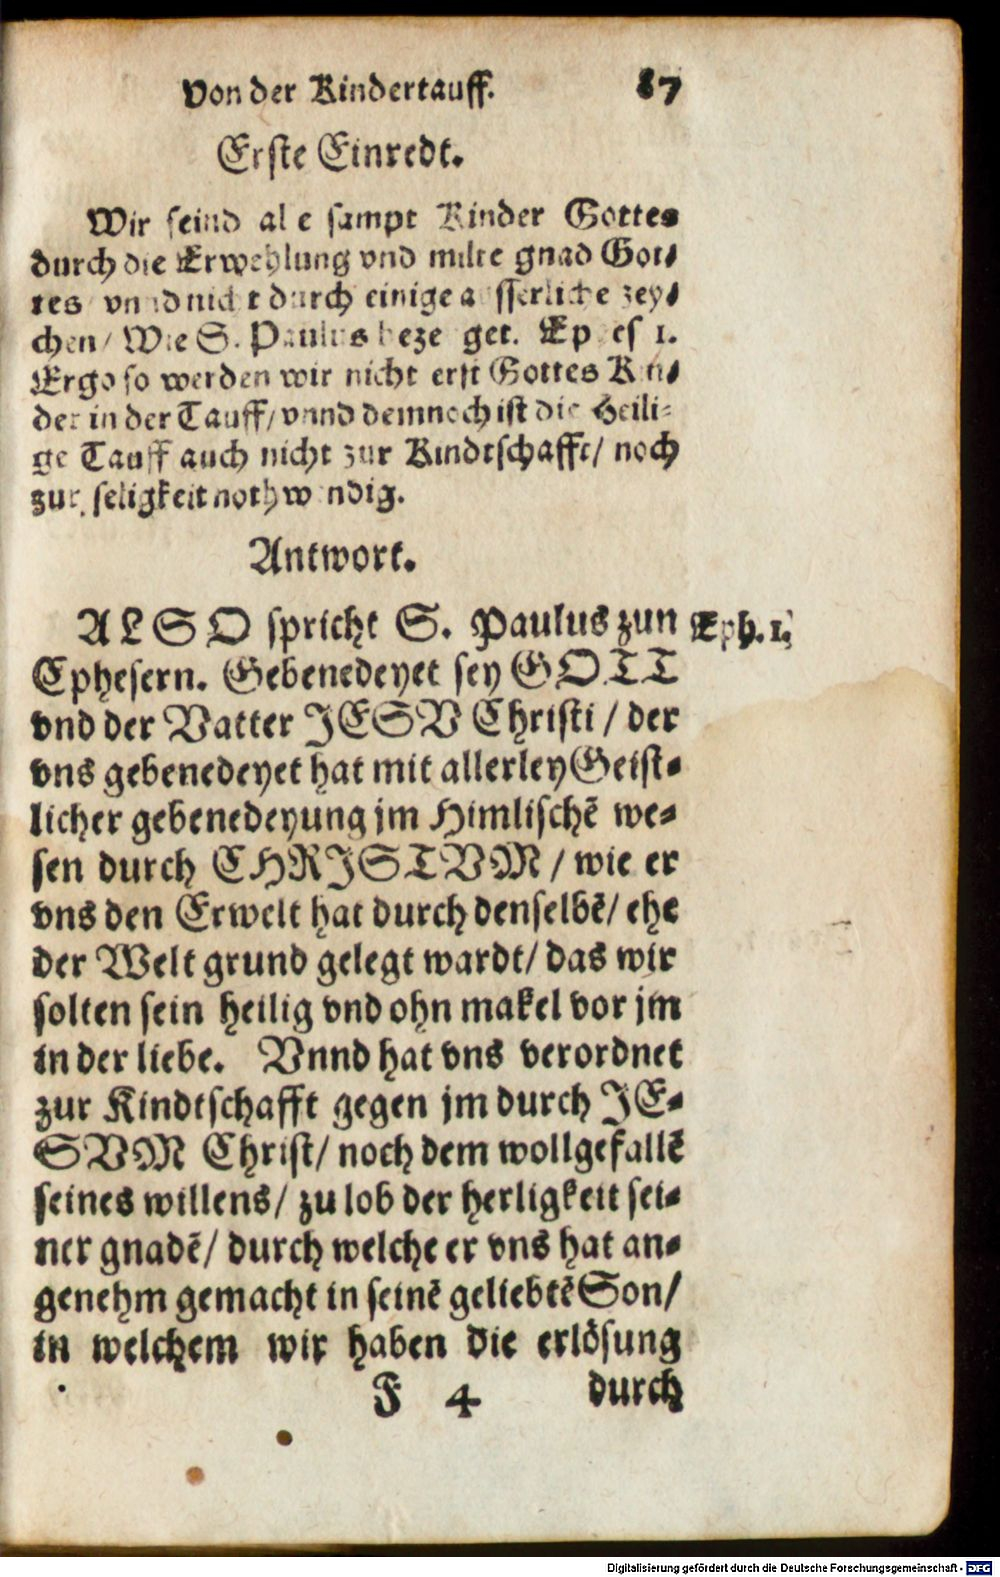 Von der Kindertauff. 87
Erste Einredt.
Wir seind alle sampt Kinder Gottes
durch die Erwehlung vnd milte gnad Got⸗
tes vnnd nicht durch einige ausserliche zey⸗
chen/ Wie S. Paulus bezeuget. Ephes 1.
Ergo so werden wir nicht erst Gottes Kin⸗
der in der Tauff/ vnnd demnoch ist die Heili⸗
ge Tauff auch nicht zur Kindtschafft/ noch
zur seligkeit nothwendig.
Antwort.
ALSO spricht S. Paulus zun Eph. 1.
Ephesern. Gebenedeyet sey GOTT
vnd der Vatter JESV Christi / der
vns gebenedeyet hat mit allerley Geist⸗
licher gebenedeyung jm Himlischē we⸗
sen durch CHRJSTVM / wie er
vns den Erwelt hat durch denselbē/ ehe
der Welt grund gelegt wardt/ das wir
solten sein heilig vnd ohn makel vor jm
in der liebe. Vnnd hat vns verordnet
zur Kindtschafft gegen jm durch JE⸗
SVM Christ/ noch dem wollgefallē
seines willens/ zu lob der herligkeit sei⸗
ner gnadē/ durch welche er vns hat an⸗
genehm gemacht in seinē geliebtē Son/
in welchem wir haben die erlösung
F 4 durch
Digitalisierung gefördert durch die Deutsche Forschungsgemeinschaft - DFG